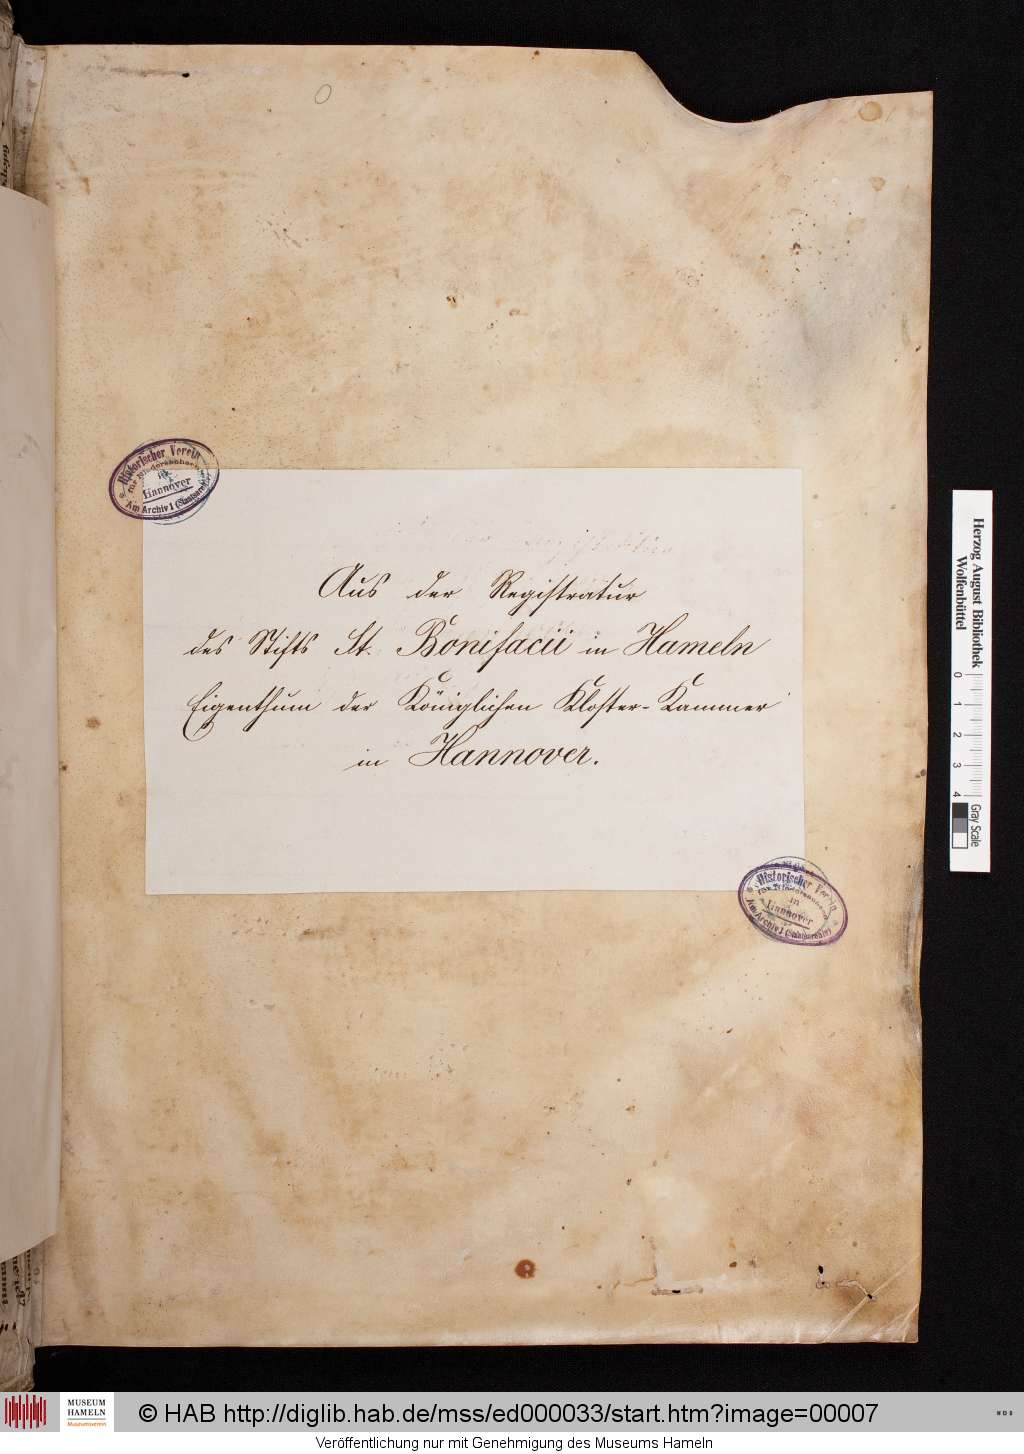 Historischer Verein
für Niedersachsen
in
Hannover
Am Archiv 1 (Staatsarchiv)
Aus der Registratur
des Stifts St. Bonifacii in Hameln
Eigenthum der Königlichen Kloster-Kammer
in Hannover.
Historischer Verein
für Niedersachsen
in
Hannover
Am Archiv 1 (Staatsarchiv)
Herzog August Bibliothek
Wolfenbüttel
0 1 2 3 4
Gray Scale
MUSEUM
HAMELN
Museumsverein
© HAB http://diglib.hab.de/mss/ed000033/start.htm?image=00007
Veröffentlichung nur mit Genehmigung des Museums Hameln